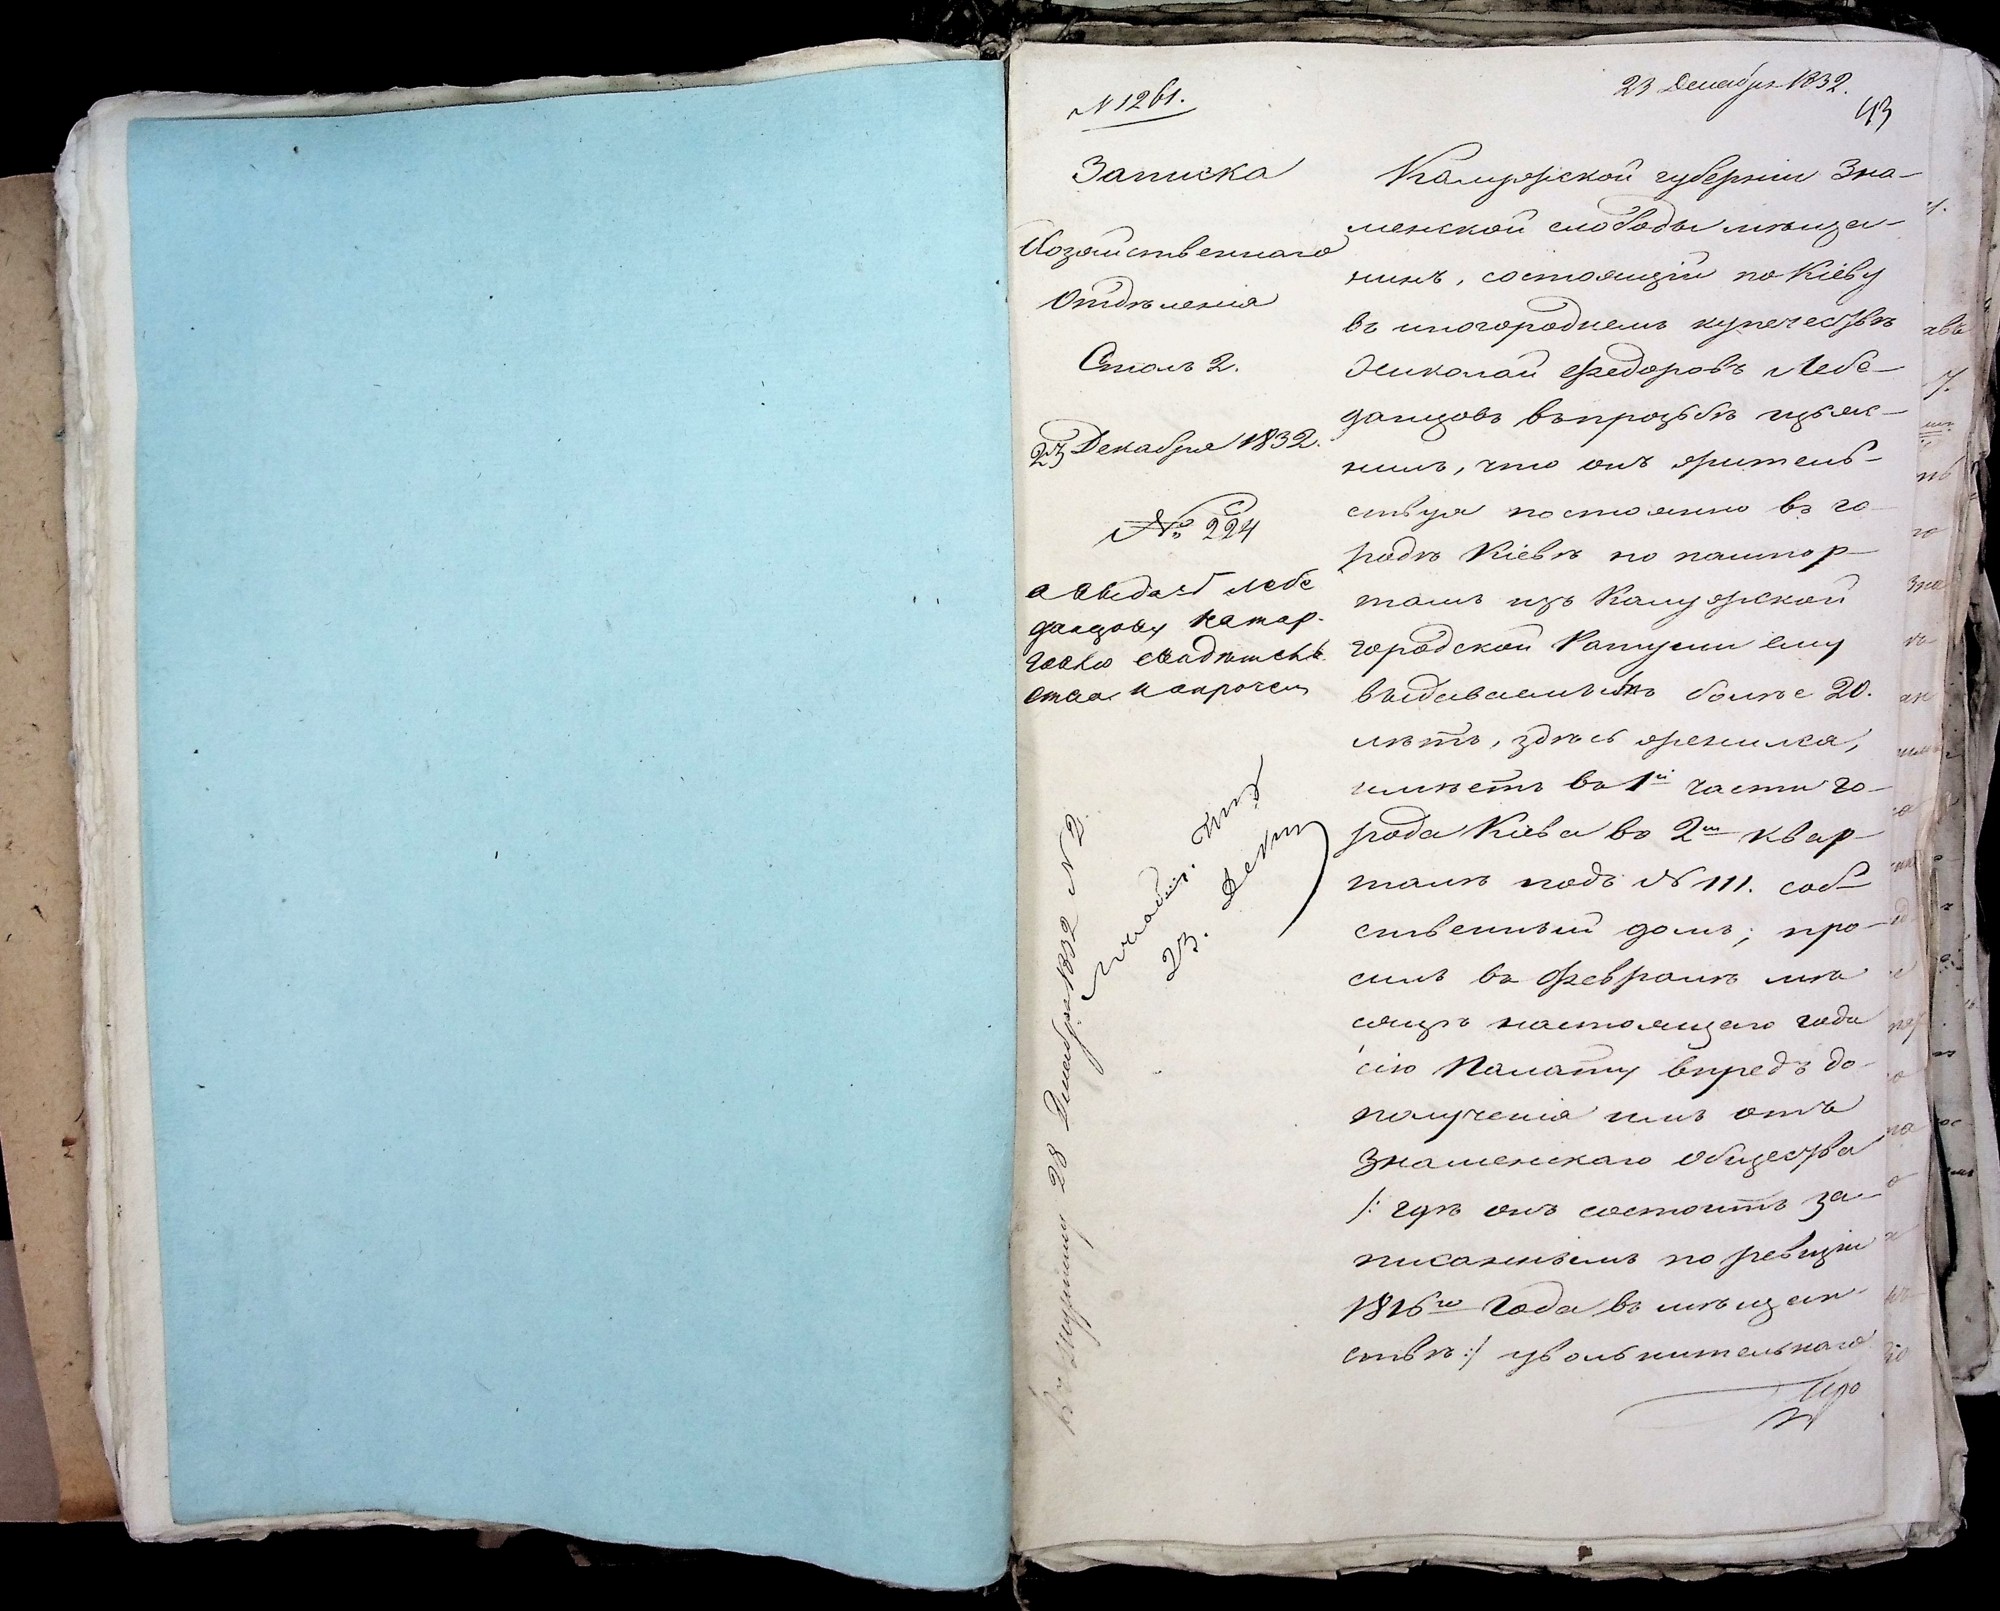 N 1261.
23 Декабря 1832.
43
Записка
Хозяйственнаго
Отдѣленія
Столъ 2.
23 Декабря 1832.
№ 224
о выдачѣ Лебе
данцову на тор-
говлю свидѣтель-
ства и о прочем
23. Декаб
28 Декабря 1832 N 2
Калужской губерніи Зна-
менской слободы мѣща-
нинъ, состоящій по Кіеву
въ иногороднемъ купечествѣ
Николай Федоровъ Лебе-
данцовъ въ прозьбѣ изъяс-
нилъ, что онъ жительс-
твуя постоянно въ го-
родѣ Кіевѣ по пашпор-
тамъ изъ Калужской
городской Ратуши ему
выдаваемымъ болѣе 20.
лѣтъ, здѣсь женился,
имѣетъ въ 1й части го-
рода Кіева въ 2м квар-
талѣ подъ № 111. соб-
ственный домъ; про-
силъ въ Февралѣ мѣ
сяцѣ настоящаго года
сію Палату впредь до
полученія имъ отъ
Знаменскаго общества
/: гдѣ онъ состоитъ за-
писаннымъ по ревизіи
1816го года въ мѣщан
ствѣ :/ увольнительнаго